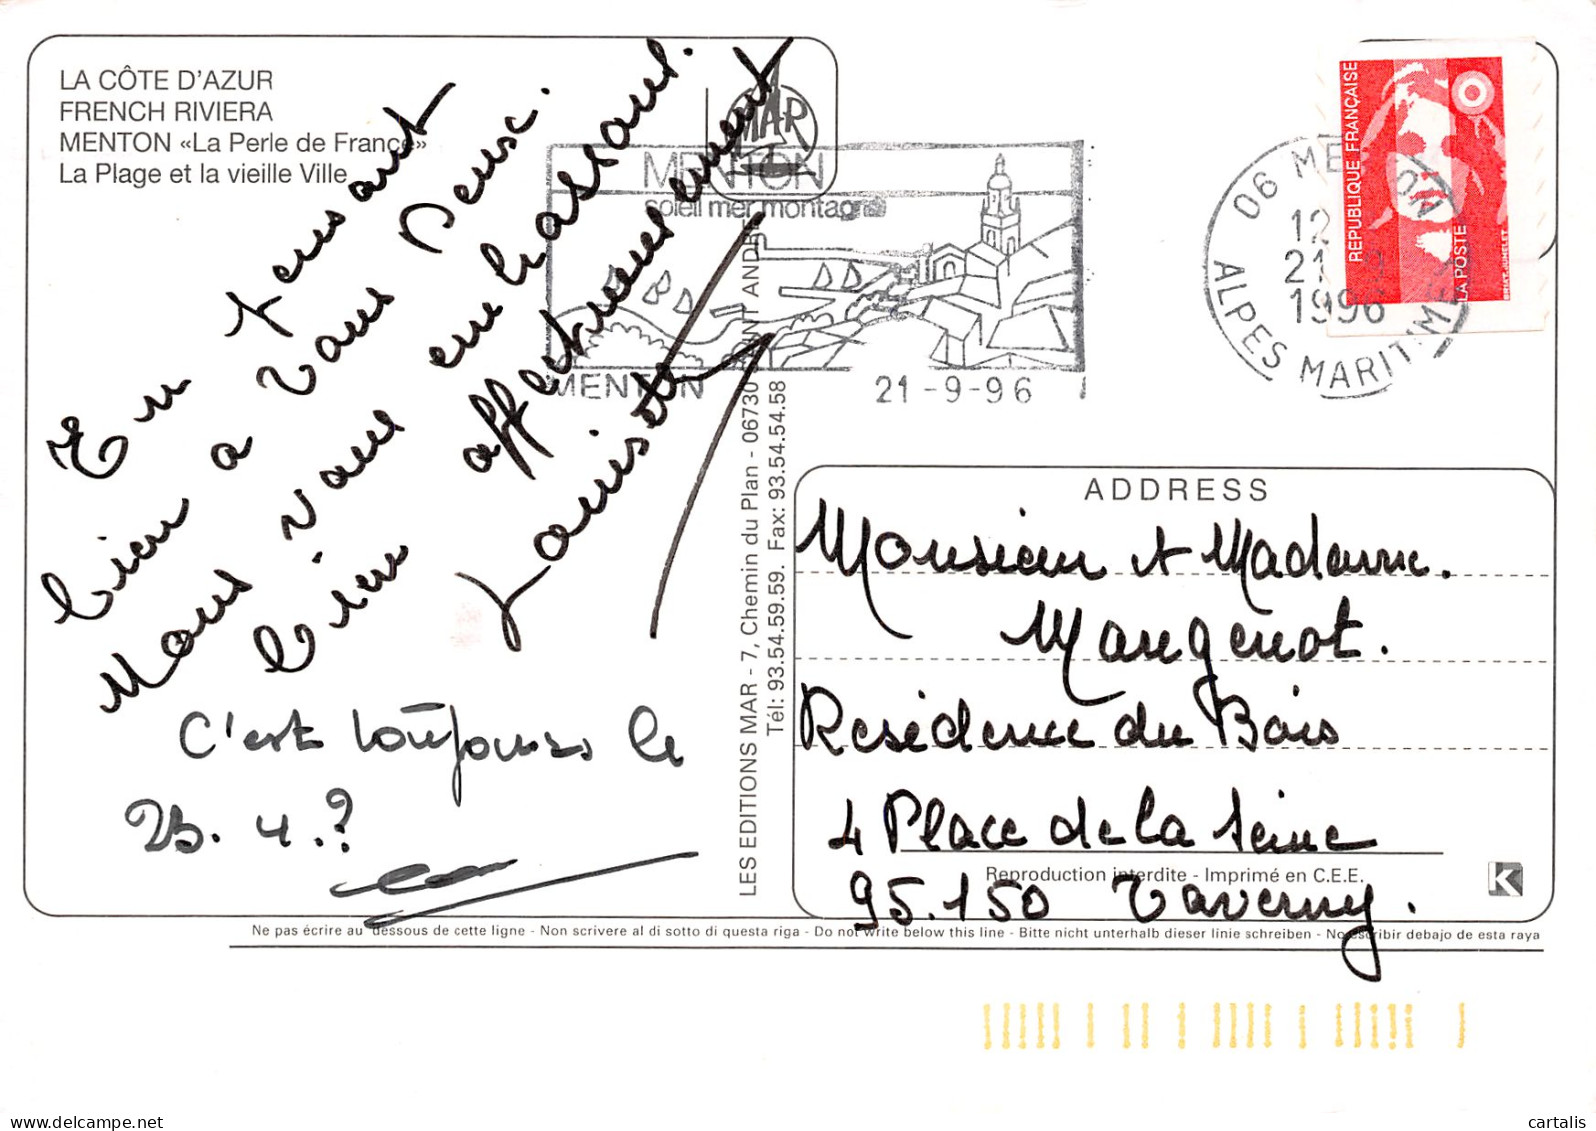 LA CÔTE D'AZUR
FRENCH RIVIERA
MENTON «La Perle de France»
La Plage et la vieille Ville
En pensant
bien a vous Deux.
Nous vous embrassons.
bien affectueusement
Louisette
C'est toujours le
23. 4.?
MAR
MENTON
soleil mer montagne
MENTON 21-9-96
LES EDITIONS MAR - 7, Chemin du Plan - 06730 SAINT ANDRÉ
Tél: 93.54.59.59. Fax: 93.54.54.58
06 MENTON
12
21-9
1996
ALPES MARITIMES
REPUBLIQUE FRANÇAISE
LA POSTE
BRIAT-JUMELET
ADDRESS
Monsieur et Madame.
Mangenot.
Residence du Bois
4 Place de la Seine
Reproduction interdite - Imprimé en C.E.E.
K
95.150 Taverny.
Ne pas écrire au dessous de cette ligne - Non scrivere al di sotto di questa riga - Do not write below this line - Bitte nicht unterhalb dieser linie schreiben - No escribir debajo de esta raya
delcampe.net
cartalis